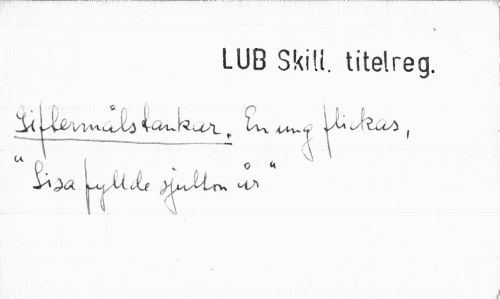 LUB Skill. titelreg.
Giftermålstankar. En ung flickas,
"Lisa fyllde sjutton år"